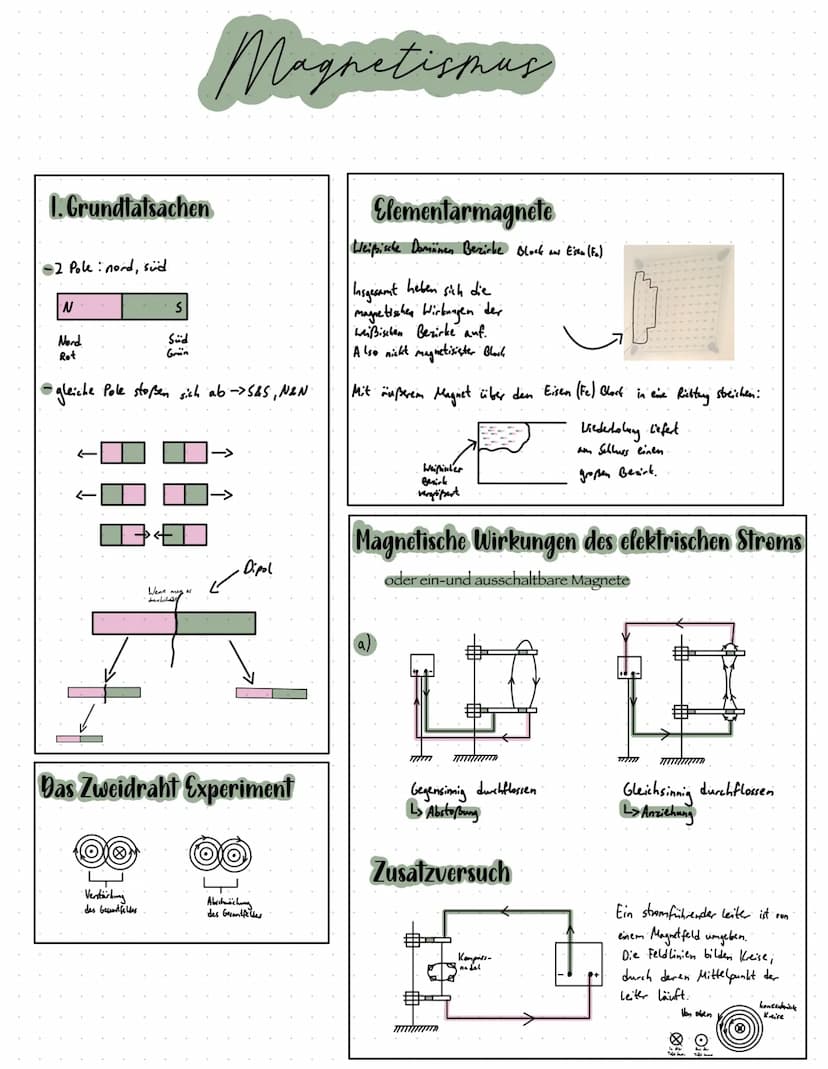 Magnetismus
1. Grundtatsachen
-2 Pole: nord, süd
N S
Nord Süd
Rot Grün
-gleiche Pole stoßen sich ab → S&S, N&N
Dipol
Elementarmagnete
Weißische Domänen Bezirke Block aus Eisen (Fe)
Insgesamt heben sich die
magnetischen Wirkungen der
weißischen Bezirke auf.
Also nicht magnetisierter Block
Mit äußerem Magnet über den Eisen (Fe) Block in eine Richtung streichen:
Wiederholung liefert
am Schluss einen
großen Bezirk.
Weißischer
Bezirk
vergrößert
Magnetische Wirkungen des elektrischen Stroms
oder ein-und ausschaltbare Magnete
a)
Gegensinnig durchflossen
↳ Abstoßung
Gleichsinnig durchflossen
↳ Anziehung
Das Zweidraht Experiment
Verstärkung
des Gesamtfeldes
Abschwächung
des Gesamtfeldes
Zusatzversuch
Kompass-
nadel
- +
Ein stromführender Leiter ist von
einem Magnetfeld umgeben.
Die Feldlinien bilden Kreise,
durch deren Mittelpunkt der
Leiter läuft.
Von oben
konzentrische
Kreise